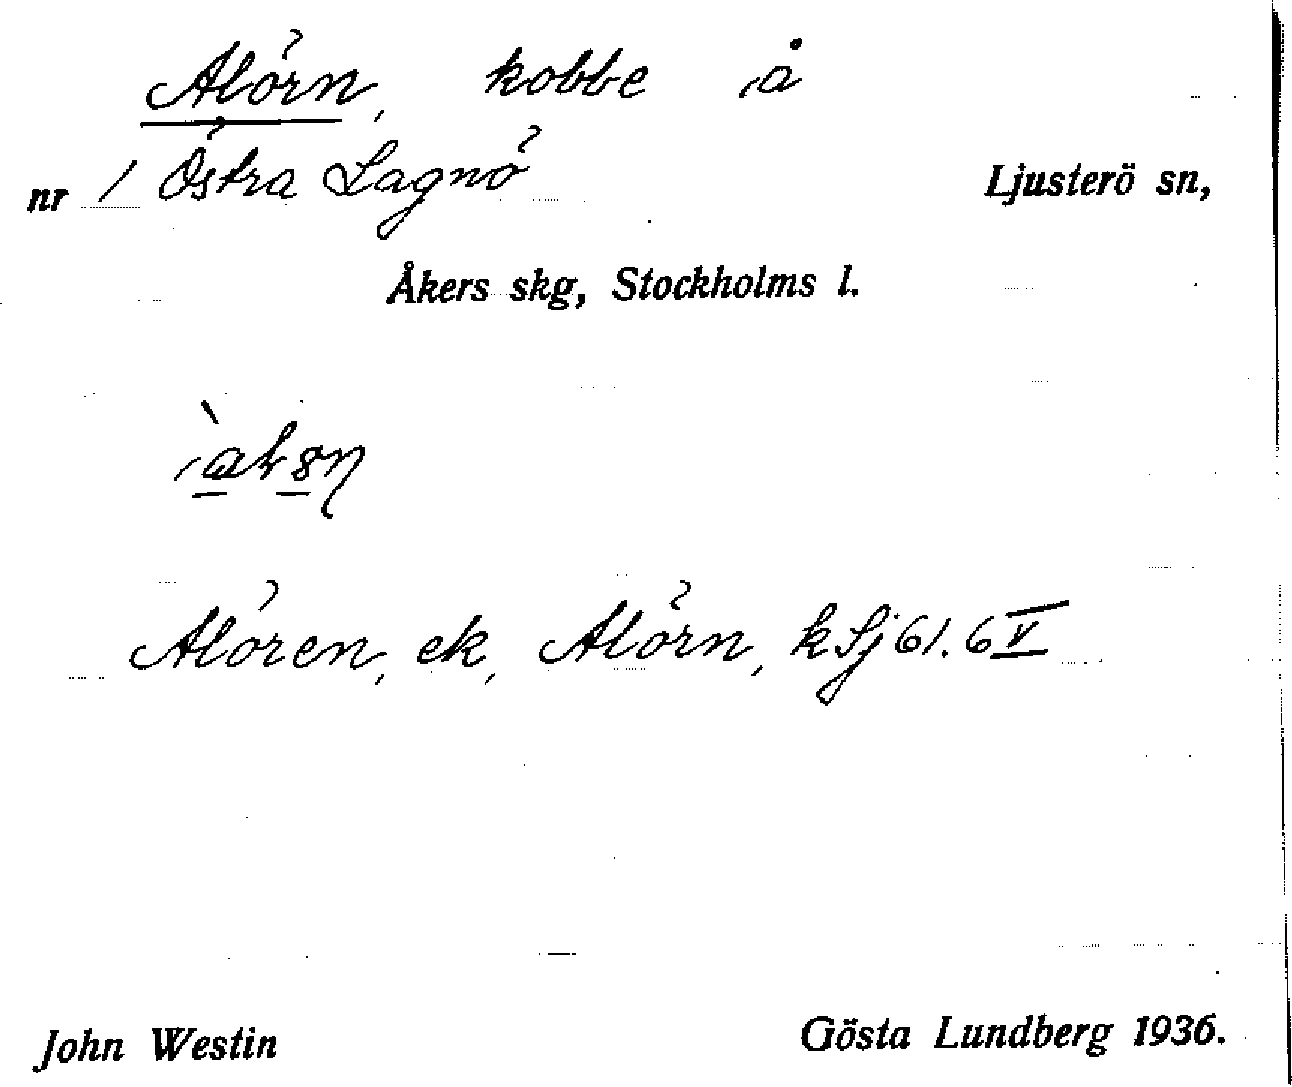 Alörn, kobbe å
nr 1 Östra Lagnö Ljusterö sn,
Åkers skg, Stockholms l.
Alören, ek, Alörn, k Sj 61.6 V
John Westin Gösta Lundberg 1936.